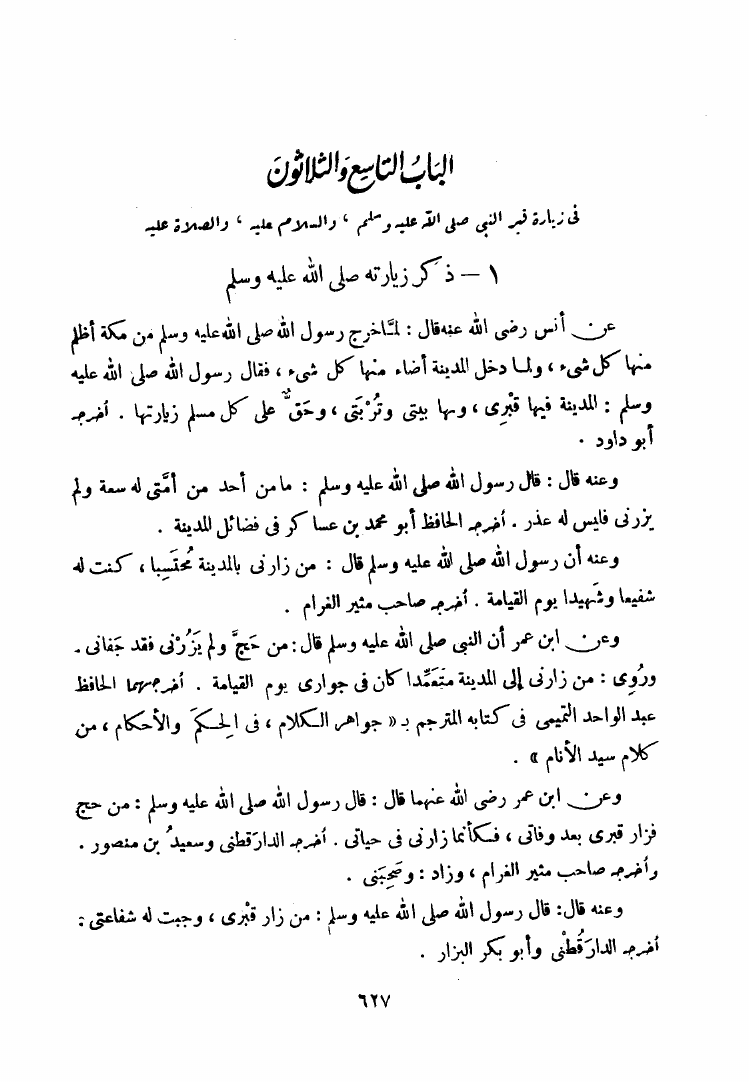 البَابُ التاسِعِ وَالثلاثونَ
فى زيارة قبر النبى صلى الله عليه وسلم ، والسلام عليه ، والصلاة عليه
١ – ذكر زيارته صلى الله عليه وسلم
عن أنس رضى الله عنه قال : لمَّا خرج رسول الله صلى الله عليه وسلم من مكة أظلم
منها كل شىء ، ولما دخل المدينة أضاء منها كل شىء ، فقال رسول الله صلى الله عليه
وسلم : المدينة فيها قَبْرِى ، وبها بيتى وتُرْبَتى ، وحَقٌّ على كل مسلم زيارتها . أخرجه
أبو داود .
وعنه قال : قال رسول الله صلى الله عليه وسلم : ما من أحد من أمَّتى له سعة ولم
يزرنى فليس له عذر . أخرجه الحافظ أبو محمد بن عساكر فى فضائل المدينة .
وعنه أن رسول الله صلى الله عليه وسلم قال : من زارنى بالمدينة مُحتَسِبا ، كنت له
شفيعا وشَهِيدا يوم القيامة . أخرجه صاحب مثير الغرام .
وعن ابن عمر أن النبى صلى الله عليه وسلم قال : من حَجَّ ولم يَزُرْنى فقد جَفانى .
ورُوِى : من زارنى إلى المدينة متَعَمِّدا كان فى جوارى يوم القيامة . أخرجهما الحافظ
عبد الواحد التميمى فى كتابه المترجم بـ « جواهر الكلام ، فى الحِكَم والأحكام ، من
كلام سيد الأنام » .
وعن ابن عمر رضى الله عنهما قال : قال رسول الله صلى الله عليه وسلم : من حج
فزار قبرى بعد وفاتى ، فكأنما زارنى فى حياتى . أخرجه الدارَقطنى وسعيدُ بن منصور .
وأخرجه صاحب مثير الغرام ، وزاد : وصَحِبَنى .
وعنه قال : قال رسول الله صلى الله عليه وسلم : من زار قبْرى ، وجبت له شفاعتى :
أخرجه الدارَقُطْنى وأبو بكر البزار .
٦٢٧